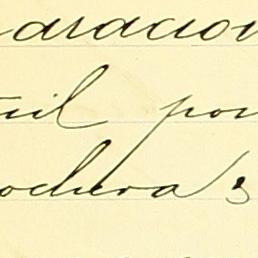 aracion
til por
ochera 3